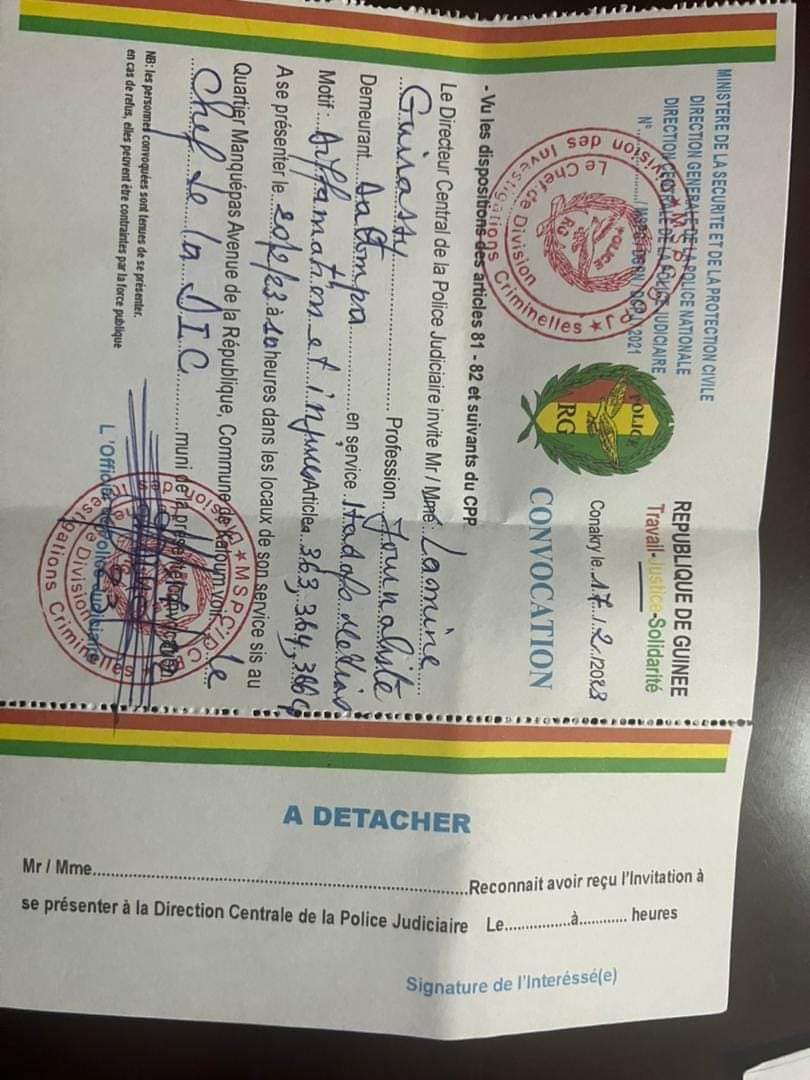 MINISTERE DE LA SECURITE ET DE LA PROTECTION CIVILE
DIRECTION GENERALE DE LA POLICE NATIONALE
DIRECTION CENTRALE DE LA POLICE JUDICIAIRE
N° 2021
★ MSPC/DCPJ ★ Division des Investigations Criminelles
Le Chef de Division
POLICE
RG
REPUBLIQUE DE GUINEE
Travail-Justice-Solidarité
Conakry le 17/2/2023
POLICE
RG
CONVOCATION
- Vu les dispositions des articles 81 - 82 et suivants du CPP
Le Directeur Central de la Police Judiciaire invite Mr / Mme Lamine
Guirassy Profession Journaliste
Demeurant en service Hadafo Médias
Motif : Diffamation et injures Article 363, 364,
A se présenter le à 10 heures dans les locaux de son service sis au
Quartier Manquépas Avenue de la République, Commune de Kaloum voir le
chef de la DIC muni de la présente convocation
NB: les personnes convoquées sont tenues de se présenter.
en cas de refus, elles peuvent être contraintes par la force publique
L'Officier de Police Judiciaire
★ MSPC/DCPJ ★ Division des Investigations Criminelles
A DETACHER
Mr / Mme Reconnait avoir reçu l'Invitation à
se présenter à la Direction Centrale de la Police Judiciaire Le à heures
Signature de l'Interéssé(e)